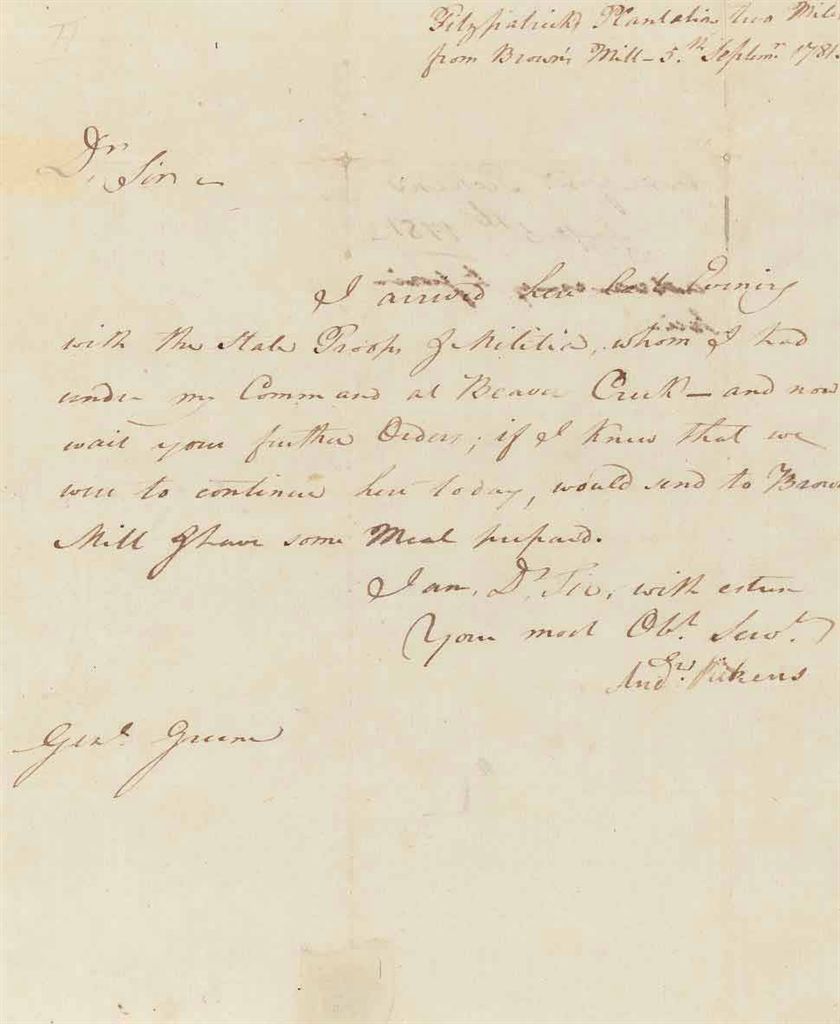 Fitzpatricks Plantation two Mile
from Brown's Mill - 5.th Septemr. 1781.
Dr. Sir -
I arrived here last Evening
with the State Troops & Militia, whom I had
under my Command at Beaver Creek - and now
wait your further Orders; if I knew that we
were to continue here today, would send to Brown
Mill & have some Meal prepared.
I am, Dr. Sir, with esteem
Your most Obt. Servt.
Andw. Pickens
Genl. Greene